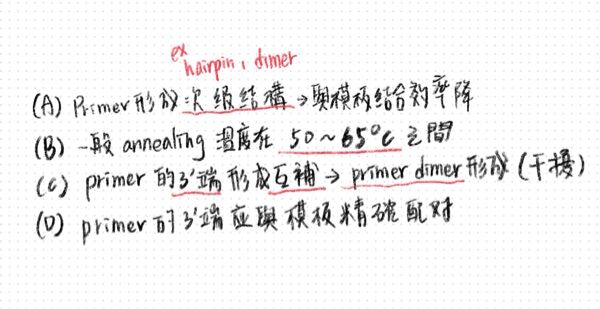 ex
hairpin, dimer
(A) Primer形成次級結構→與模板結合效率降
(B) 一般 annealing 溫度在 50~65°C 之間
(C) primer 的3'端形成互補→primer dimer形成(干擾)
(D) primer 的3'端應與模板精確配对